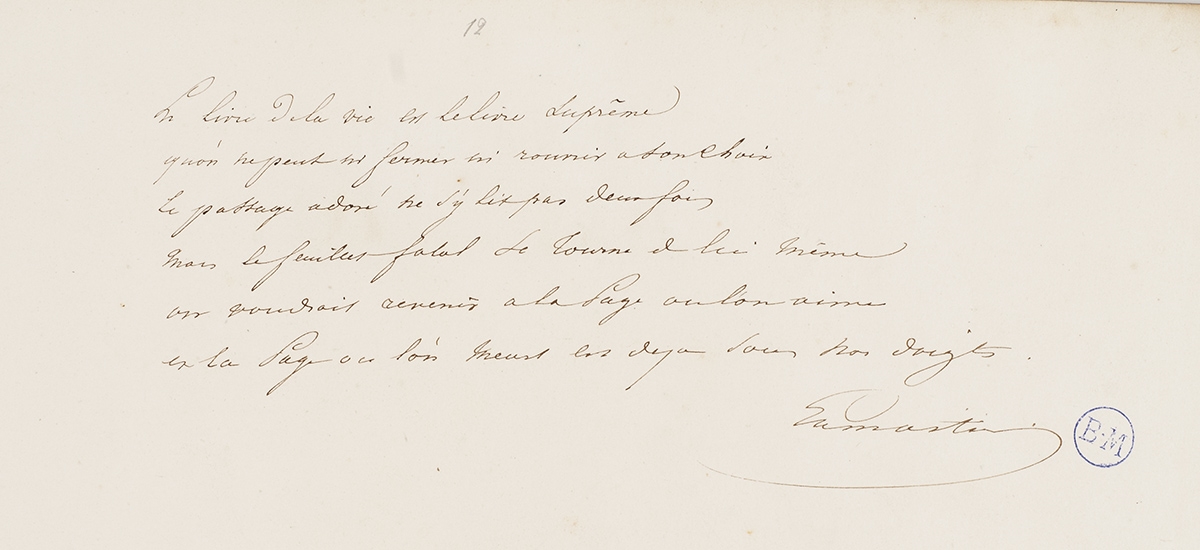 12
Le livre de la vie est le livre suprême
qu'on ne peut ni fermer ni rouvrir a son choix
le passage adoré ne s'y lit pas deux fois
mais le feuillet fatal se tourne de lui même
on voudrait revenir a la page ou l'on aime
et la page ou l'on meurt est deja sous nos doigts .
Lamartine
B·M